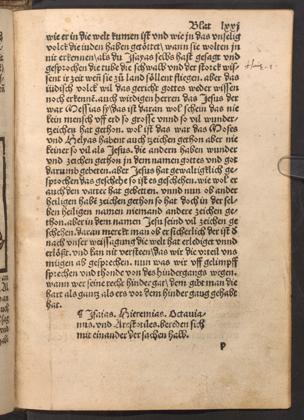 Blat lxxj
wie er in die welt kumen ist vnd wie in das vnselig
volck die iuden haben getöttet / wann sie wolten jn
nit erkennen / als du Isayas selbs hast gesagt vnd
gesprochen die tube die schwalb vnd der storck wis
sent ir zeit wen sie zů land söllent fliegen. aber das
iüdisch volck wil das gericht gottes weder wissen
noch erkenne. auch wirdigen herren das Jesus der
war Messias sy / das ist daran wol schein das nie
kein mensch vff erd so grosse vnnd so vil wunder
zeichen hat gethon. wol ist das war das Moses
vnd Helyas habent auch zeichen gethon aber nie
keiner so vil als Jesus. die andern haben wunder
vnd zeichen gethon in dem namen gottes vnd got
darumb gebeten. aber Jesus hat gewaltigklich ge
sprochen das geschehe so ist es geschehen. wie wol er
auch den vatter hat gebeten. vnnd nun ob ander
heiligen habē zeichen gethon so hat doch in der sel
ben heiligen namen niemand andere zeichen ge
thon. aber in dem namen Jesu seind vil zeichen ge
schehen. daran merckt man ob er sicherlich der ist ð
nach vnser weissagung die welt hat erlediget vnnd
erlößt. vnd kan nit versteen das wir die vrteil vns
mügen ab gesprechen. nun was wir vff gelimpff
sprechen vnd thonde von des hindergangs wegen.
wann wer seine rechte hinder gat / dem gibt man die
hart als gantz als ers vor dem hinder gang gehabt
hat.
¶ Isaias. Hieremias. Octauia-
nus. vnd Aristotiles. bereden sich
mit einander der sachen halb.
p